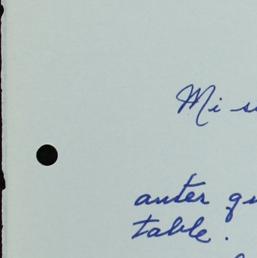 Mi
anter
table.